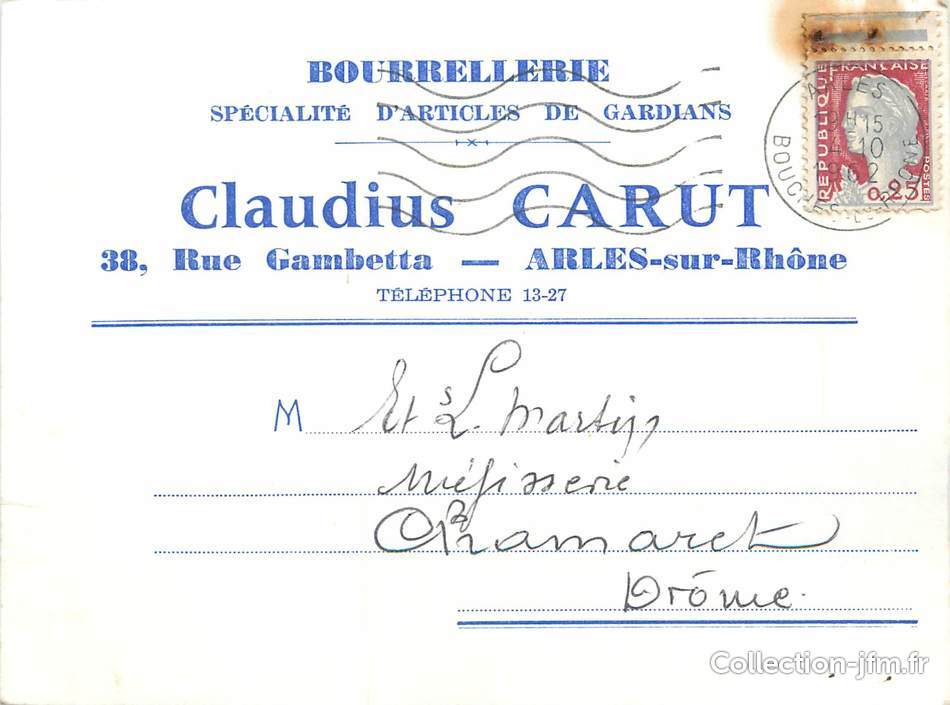 BOURRELLERIE
SPÉCIALITÉ D'ARTICLES DE GARDIANS
Claudius CARUT
38, Rue Gambetta — ARLES-sur-Rhône
TÉLÉPHONE 13-27
RÉPUBLIQUE FRANÇAISE
POSTES
0,25
ARLES
15
10
1962
BOUCHES DU RHONE
M Ets L. Martin
Mégisserie
Chamaret
Drôme.
Collection-jfm.fr